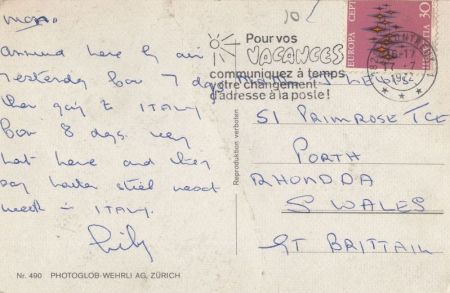 mon.
10
Arrived here by air
yesterday for 7 days
then going to ITALY
for 8 days. very
hot here and they
say hotter still next
week in ITALY.
Pour vos
VACANCES
communiquez à temps
votre changement
d'adresse à la poste!
EUROPA CEPT
HELVETIA 30
MONTREUX 1
1972
51 PRIMROSE TCE
PORTH
RHONDDA
S WALES
GT BRITTAIN
Reproduktion verboten
Nr. 490 PHOTOGLOB-WEHRLI AG, ZÜRICH